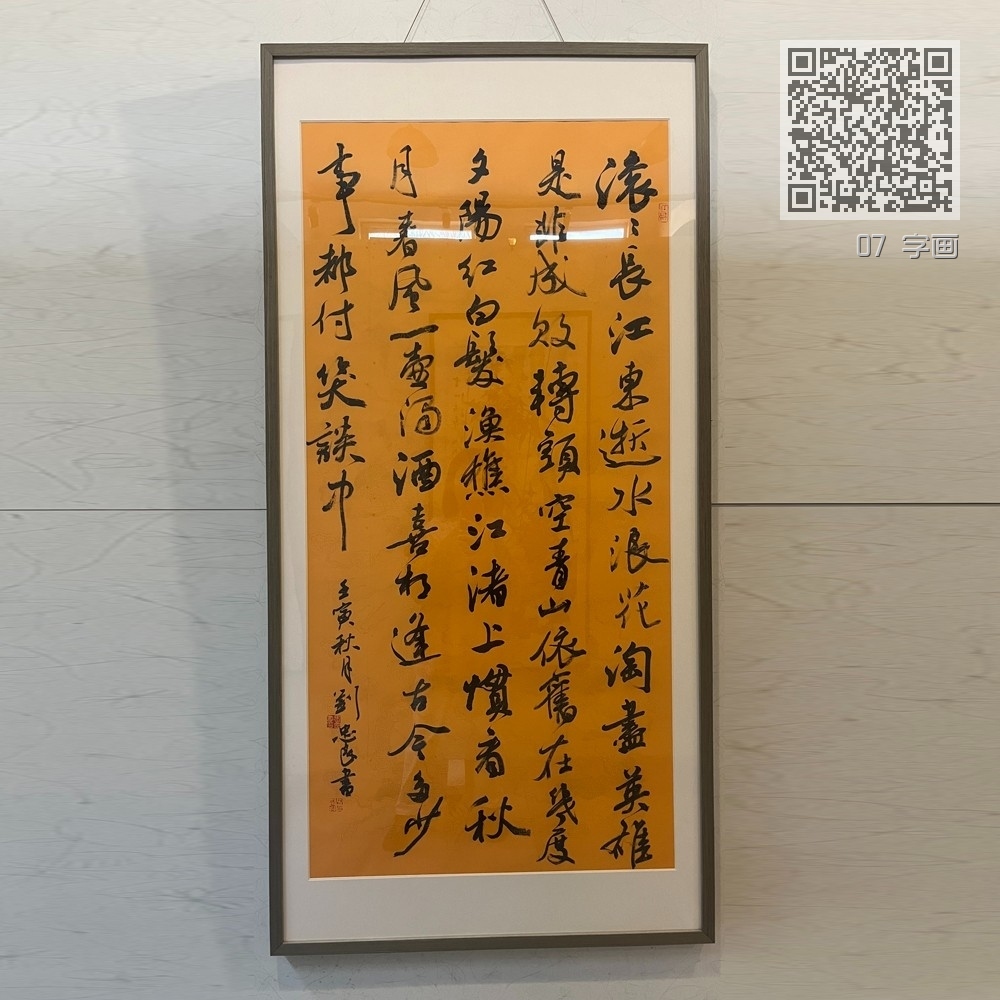 滚〻長江東逝水浪花淘盡英雄
是非成敗轉頭空青山依舊在幾度
夕陽紅白髮漁樵江渚上慣看秋
月春風一壺濁酒喜相逢古今多少
事都付笑談中
壬寅秋月劉忠良書
07 字画